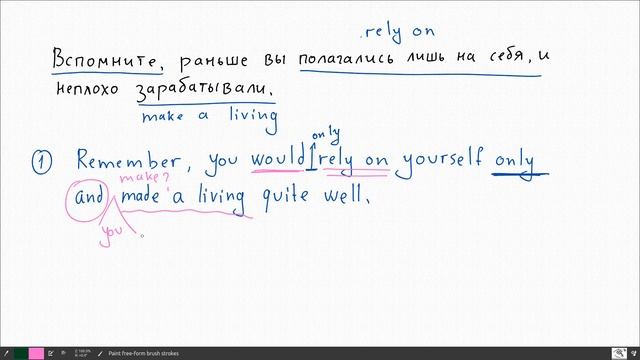 rely on
Вспомните, раньше вы полагались лишь на себя, и
неплохо зарабатывали.
make a living
only
1 Remember, you would rely on yourself only
make?
and made a living quite well.
you
Paint free-form brush strokes